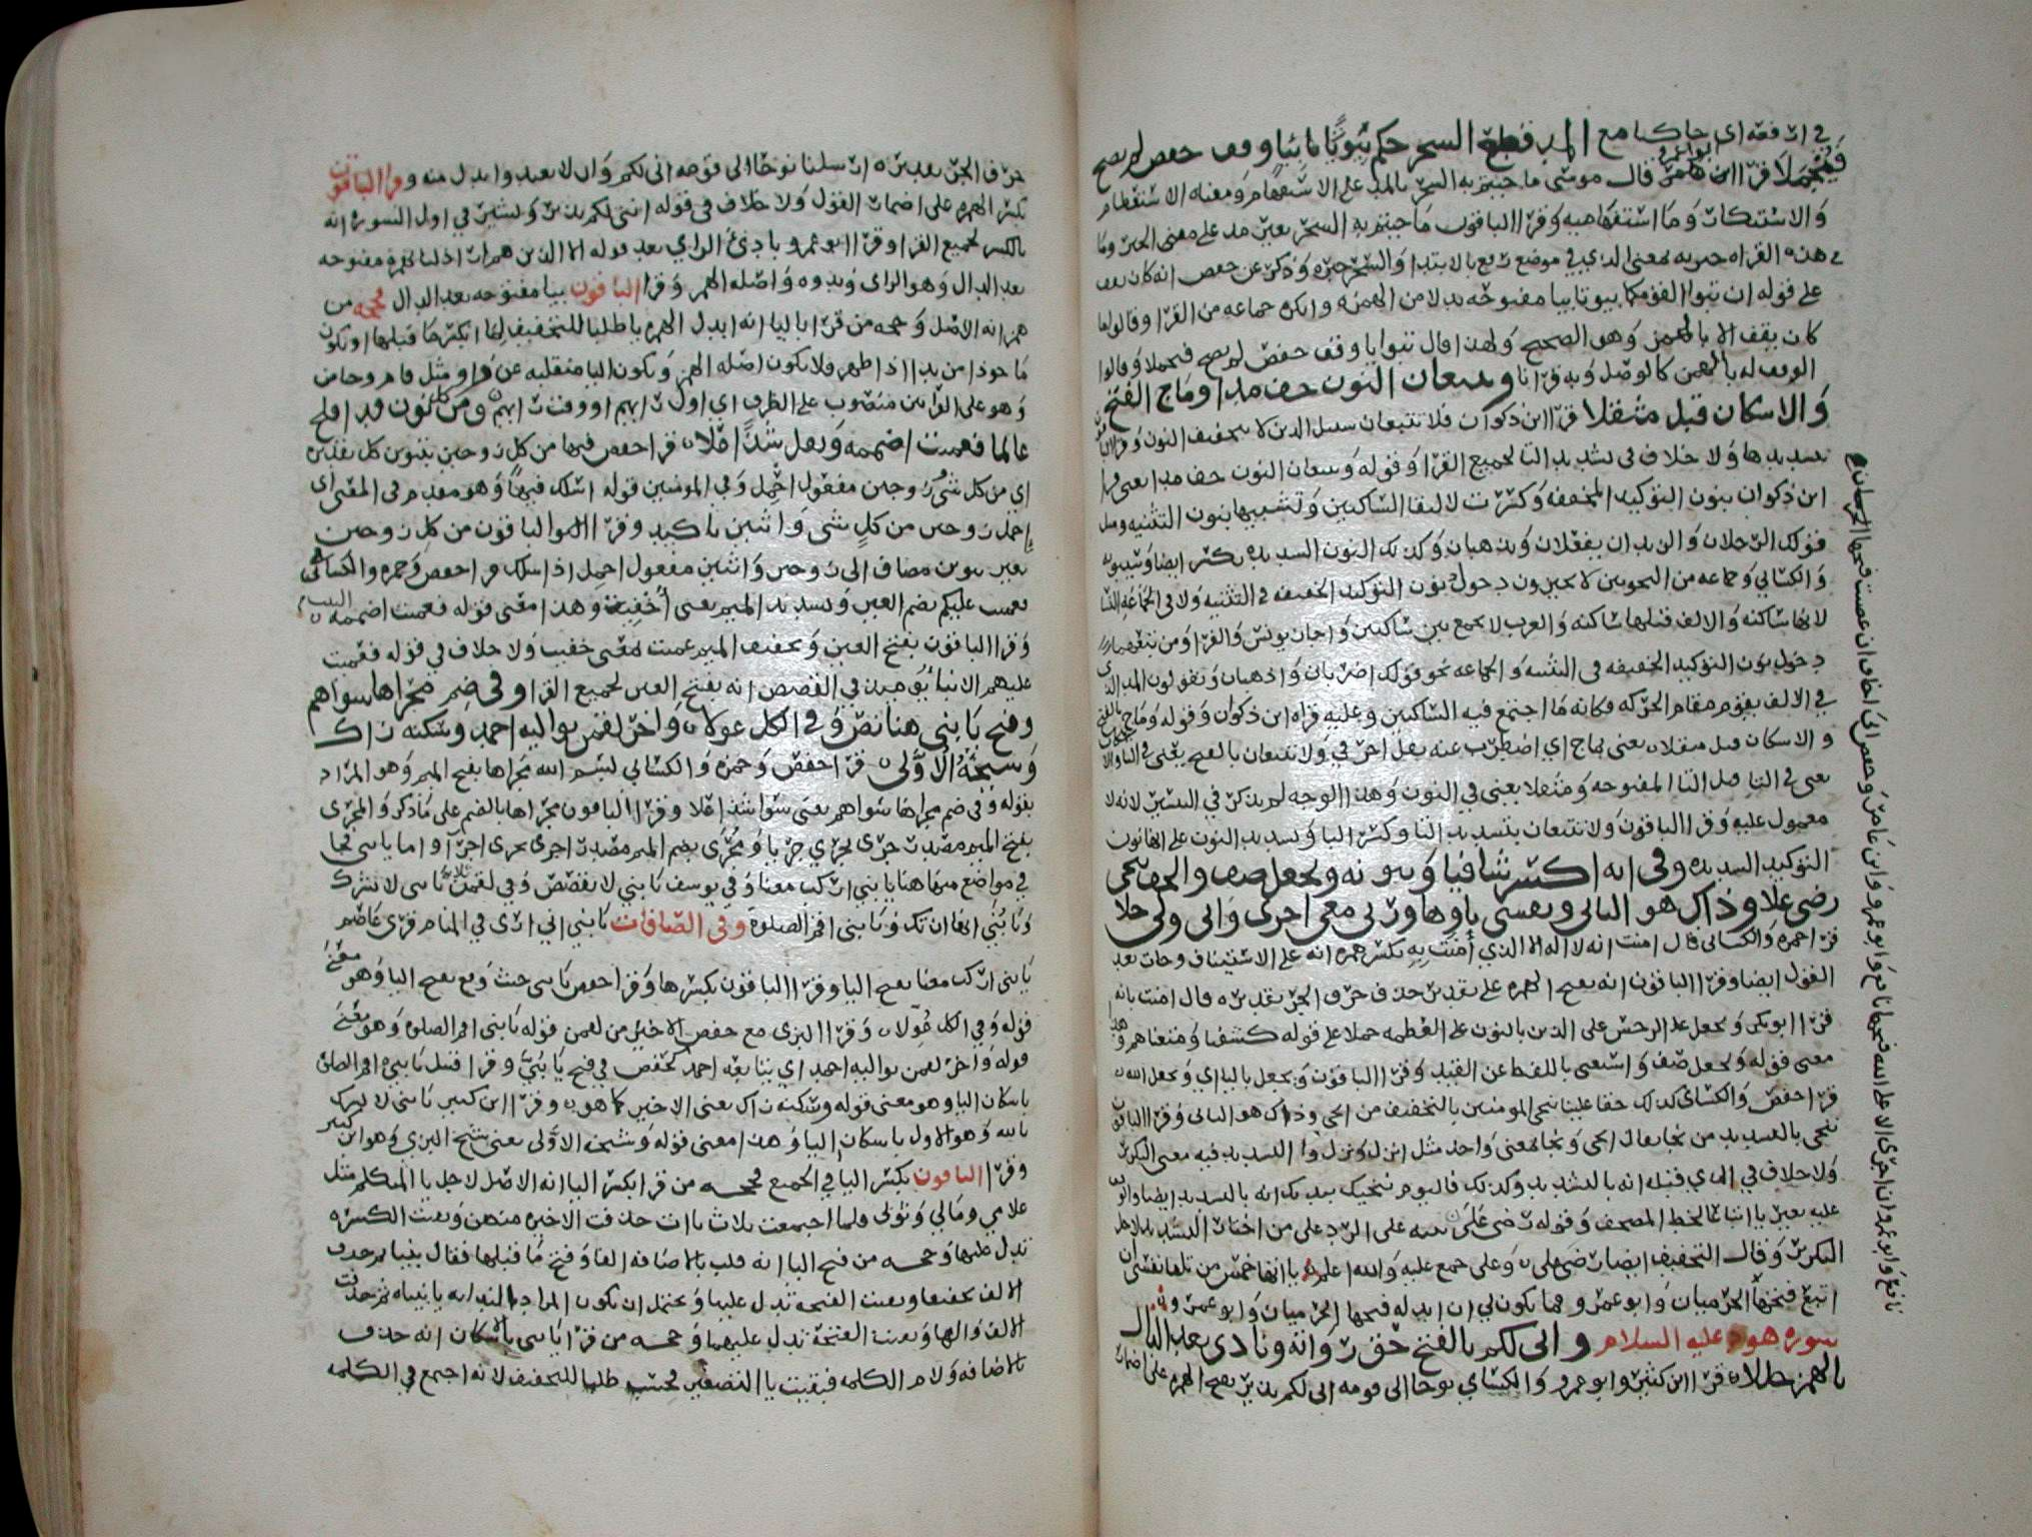 في ارفعه اي حاكما مع المد قطع السحر حكم تبويا بيا وقف حفص لم يصح
فيحملا قرا ابو عمرو قال موسى ما جيتم به السحر بالمد على الاستفهام ومعناه الاستعظام
وقرا الباقون ما جيتم به السحر بغير مد على معنى الخبر وما
في هذه القراه بمعنى الذي في موضع رفع بالابتدا والسحر خبره وذكر عن حفص انه كان يقف
على قوله ان تبوا لقومكما بيوتا بيا مفتوحه بدلا من الهمزه وانكره جماعه من القرا وقالوا
كان يقف الا بالهمز وهو الصحيح ولهذا قال تبويا وقف حفص لم يصح فيحملا وقالوا
الوقف له بالهمز كالوصل وبه قرانا وتتبعان النون خف مدا وماج بالفتح
والاسكان قبل مثقلا قرا ابن ذكوان فلا تتبعان سبيل الذين لا بتخفيف النون
بتشديدها ولا خلاف في تشديد التا لجميع القرا وقوله وتتبعان النون خف مدا يعني قرا
ابن ذكوان بنون التوكيد المخففه وكسرت لالتقا الساكنين ولتشبيهها بنون التثنيه
قولك الرجلان والزيدان يفعلان ويذهبان وكذلك النون الشديده تكسر ايضا وسيبويه
والكسائي وجماعه من النحويين لا يجيزون دخول نون التوكيد الخفيفه في التثنيه ولا في الجماعه
لانها ساكنه والالف قبلها ساكنه والعرب لا تجمع بين ساكنين واجاز يونس والفرا
دخول نون التوكيد الخفيفه في التثنيه والجماعه نحو قولك اضربان واذهبان ويقولون المد الذي
في الالف يقوم مقام الحركه فكانه ما اجتمع فيه الساكنين وعليه قراه ابن ذكوان وقوله وماج بالفتح
والاسكان قبل مثقلا يعني ماج اي اضطرب عنه نقل اخر في ولا تتبعان بالفتح يعني في البا
يعني في التا قبل البا المفتوحه ومثقلا يعني في النون وهذا الوجه لم يذكر في التيسير لانه لا
معمول عليه وقرا الباقون ولا تتبعان بتشديد التا وكسر البا وتشديد النون على القانون
التوكيد الشديده وفي انه اكسر شافيا وبنونه ونجعل صف والخف ننجي
رضى علا وذاك هو الثاني ونفسي ياوها وربي مع اجري واني ولي حلا
قرا حمزه والكسائي قال امنت انه لا اله الا الذي امنت به بكسر همزه انه على الاستيناف وجاز بعد
القول ايضا وقرا الباقون انه بفتح الهمزه على تقدير حذف حرف الجر تقديره قال امنت بانه
قرا ابو بكر ونجعل الرجس على الذين بالنون على العظمه حملا على قوله كشفنا ومتعناهم وهذا
معنى قوله ونجعل صف واستغنى باللفظ عن القيد وقرا الباقون ويجعل باليا اي ويجعل الله
قرا حفص والكسائي كذلك حقا علينا ننجي المومنين بالتخفيف من انجى وذاك هو الثاني وقرا الباقون
ننجي بالتشديد من نجا يقال انجى ونجا لمعنى واحد مثل انزل ونزل والتشديد فيه معنى التكرير
ولا خلاف في الذي قبله انه بالتشديد وكذلك فاليوم ننجيك ببدنك انه بالتشديد ايضا
عليه بغير يا اتباعا لخط المصحف وقوله رضى على
التكرير وقال التخفيف ايضا رضى علي وعلى جمع عليه والله اعلم يا اتها خمس من تلقا نفسي ان
اتبع فتحها الحرميان وابو عمرو وما يكون لي ان ابدله فتحها الحرميان وابو عمرو
سوره هود عليه السلام واني لكم بالفتح حق رواته وبادى بعد الدال
بالهمز حللا قرا ابن كثير وابو عمرو والكسائي نوحا الى قومه اني لكم نذير بفتح الهمزه على اضمار
نافع وابو عمرو ان اجري الا على الله فتحها نافع وابو عمرو وابن عامر وحفص اني اخاف ان عصيت فتحها الحرميان
حرف الجر تقديره ارسلنا نوحا الى قومه اني لكم وان لا تعبدوا بدل منه وقرا الباقون
بكسر الهمزه على اضمار القول ولا خلاف في قوله انني لكم نذير وبشير في اول السوره انه
بالكسر لجميع القرا وقرا ابو عمرو بادئ الراي بعد قوله الا الذين هم اراذلنا بهمزه مفتوحه
بعد الدال وهو الراي وبدوه واصله الهمز وقرا الباقون بيا مفتوحه بعد الدال فحجه من
همز انه الاصل وحجه من قرا باليا انه ابدل الهمزه يا طلبا للتخفيف لما انكسر ما قبلها او يكون
ماخوذا من بدا اذا ظهر فلا يكون اصله الهمز ويكون اليا منقلبه عن واو مثل قام
وهو على القراتين منصوب على الظرف اي اول رايهم او وقت رايهم ومن كل نون قد افلح
عالما فعميت اضممه وثقل شذا علا قرا حفص فيها من كل زوجين بتنوين كل تقديره
اي من كل شي زوجين مفعول احمل وفي المومنين قوله اسلك فيها وهو مقدم في المعنى اي
احمل زوجين من كل شي واثنين تاكيد وقرا الباقون من كل زوجين
بغير تنوين مضاف الى زوجين واثنين مفعول احمل اذا اسلك قرا حفص وحمزه والكسائي
فعميت عليكم بضم العين وتشديد الميم يعني اخفيت وهذا معنى قوله فعميت اضممه
وقرا الباقون بفتح العين وتخفيف الميم عميت لمعنى خفيت ولا خلاف في قوله فعميت
عليهم الانبا يوميذ في القصص انه بفتح العين لجميع القرا وفي ضم مجراها سواهم
وفتح يا بني هنا نص وفي الكل عولا واخر لقمن يواليه احمد وسكنه زاك
وشيخه الاولى قرا حفص وحمزه والكسائي بسم الله مجراها بفتح الميم وهو المراد
بقوله وفي ضم مجراها سواهم يعني سوا شذا علا وقرا الباقون مجراها بالضم على ما ذكر والمجرى
بفتح الميم مصدر جرى يجري جريا ومجرى بضم الميم مصدر اجرى يجري اجرآ واما يا بني فجا
في مواضع منها هنا يا بني اركب معنا وفي يوسف يا بني لا تقصص وفي لقمن يا بني لا تشرك
ويا بني انها ان تك ويا بني اقم الصلوة وفي الصافات يا بني اني ارى في المنام قرى عاصم
يا بني اركب معنا بفتح اليا وقرا الباقون بكسرها وقرا حفص يا بني حيث وقع بفتح اليا وهو معنى
قوله وفي الكل عولا وقرا البزي مع حفص الاخير من لقمن قوله يا بني اقم الصلوه وهو معنى
قوله واخر لقمن يواليه احمد اي يتابعه احمد لحفص في فتح يا بني وقرا قنبل يا بني اقم الصلاه
باسكان اليا وهو معنى قوله وسكنه زاك يعني الاخير كما هو وقرا ابن كثير يا بني لا تشرك
بالله وهو الاول باسكان اليا وهذا معنى قوله وشيخه الاولى يعني شيخ البزي وهو ابن كثير
وقرا الباقون بكسر اليا في الجميع فحجه من قرا بكسر اليا انه الاصل لاجل يا المتكلم مثل
غلامي ومالي وثوبي ولما اجتمعت ثلاث ياات حذفت الاخيره منهن وبقيت الكسره
تدل عليها وحجه من فتح اليا انه قلب يا الاضافه الفا وفتح ما قبلها فقال يبنيا ثم حذف
الالف تخفيفا وبقيت الفتحه تدل عليها ويحتمل ان يكون المراد الندا به يا بنياه ثم حذفت
الالف والها وبقيت الفتحة تدل عليهما وحجه من قرا يا بني باسكان انه حذف
يا الاضافه ولام الكلمه فبقيت يا التصغير فحسب طلبا للتخفيف لانه اجتمع في الكلمه